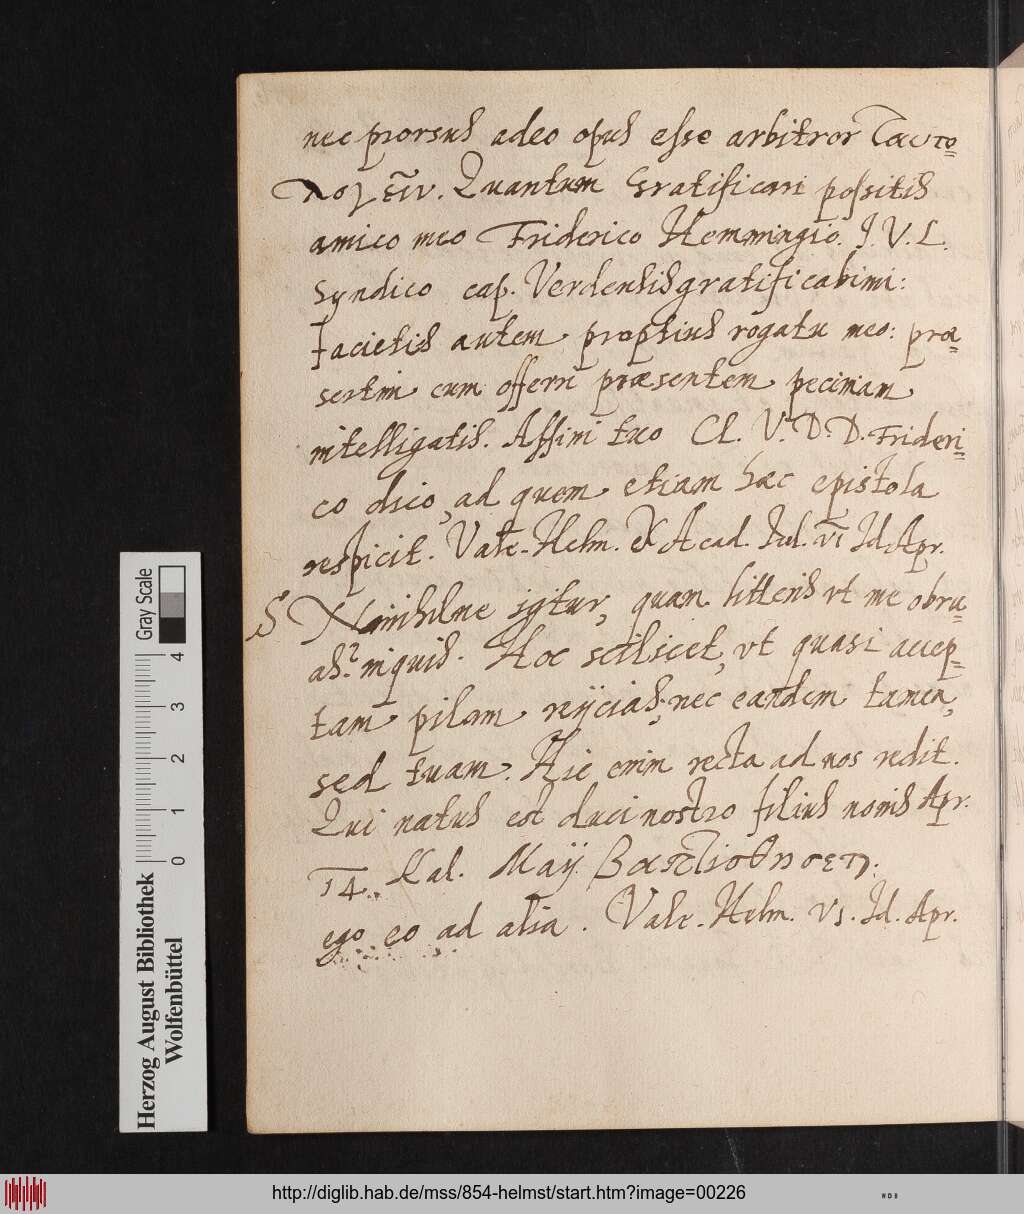 nec prorsus adeo opus esse arbitror ταυτο=
λογεῖν. Quantum Gratificari possitis
amico meo Friderico Hemmingio. J. V. L.
Syndico cap. Verdensis gratificabimi:
Facietis autem propitius rogatu meo: præ=
sertim cum offerri præsentem pecuniam
intelligatis. Affini tuo Cl. V. D. D. Frideri=
co dico, ad quem etiam hæc epistola
respicit. Vale. Helm. Ex Acad. Jul. VI Id. Apr.
S Nnihilne igitur, quam litteris vt me obru
as? inquis. Hoc scilicet, vt quasi accep=
tam pilam reijcias, nec eandem tamen,
sed tuam. Hic enim recta ad nos redit.
Qui natus est duci nostro filius nonis Apr.
14. Kal. Maij βαπτισθησεται.
ego eo ad alia. Vale. Helm. VI. Id. Apr.
Gray Scale
4
3
2
1
0
Herzog August Bibliothek
Wolfenbüttel
http://diglib.hab.de/mss/854-helmst/start.htm?image=00226
WDB